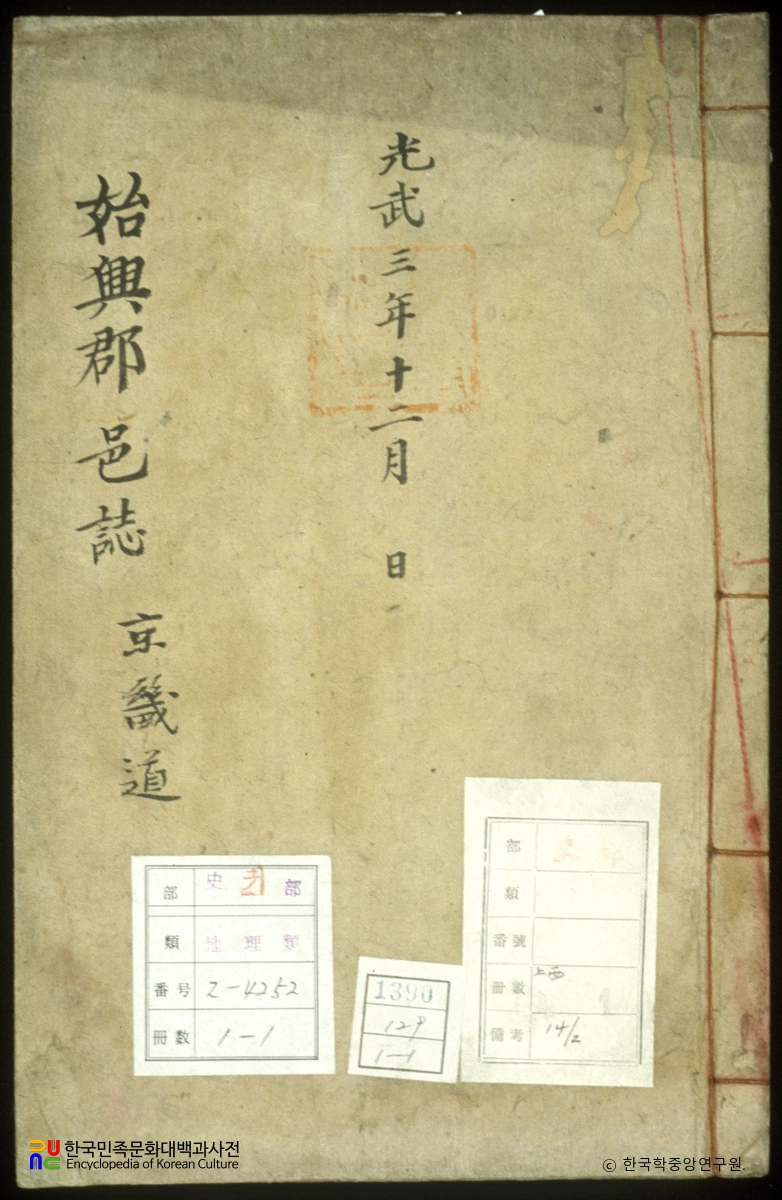 光武三年十二月 日
始興郡邑誌 京畿道
部 史 部
類 地理類
番号 Z-4252
冊數 1-1
1390
129
1-1
部
類
番號
冊數 上西
備考 14/2
한국민족문화대백과사전
Encyclopedia of Korean Culture
© 한국학중앙연구원.